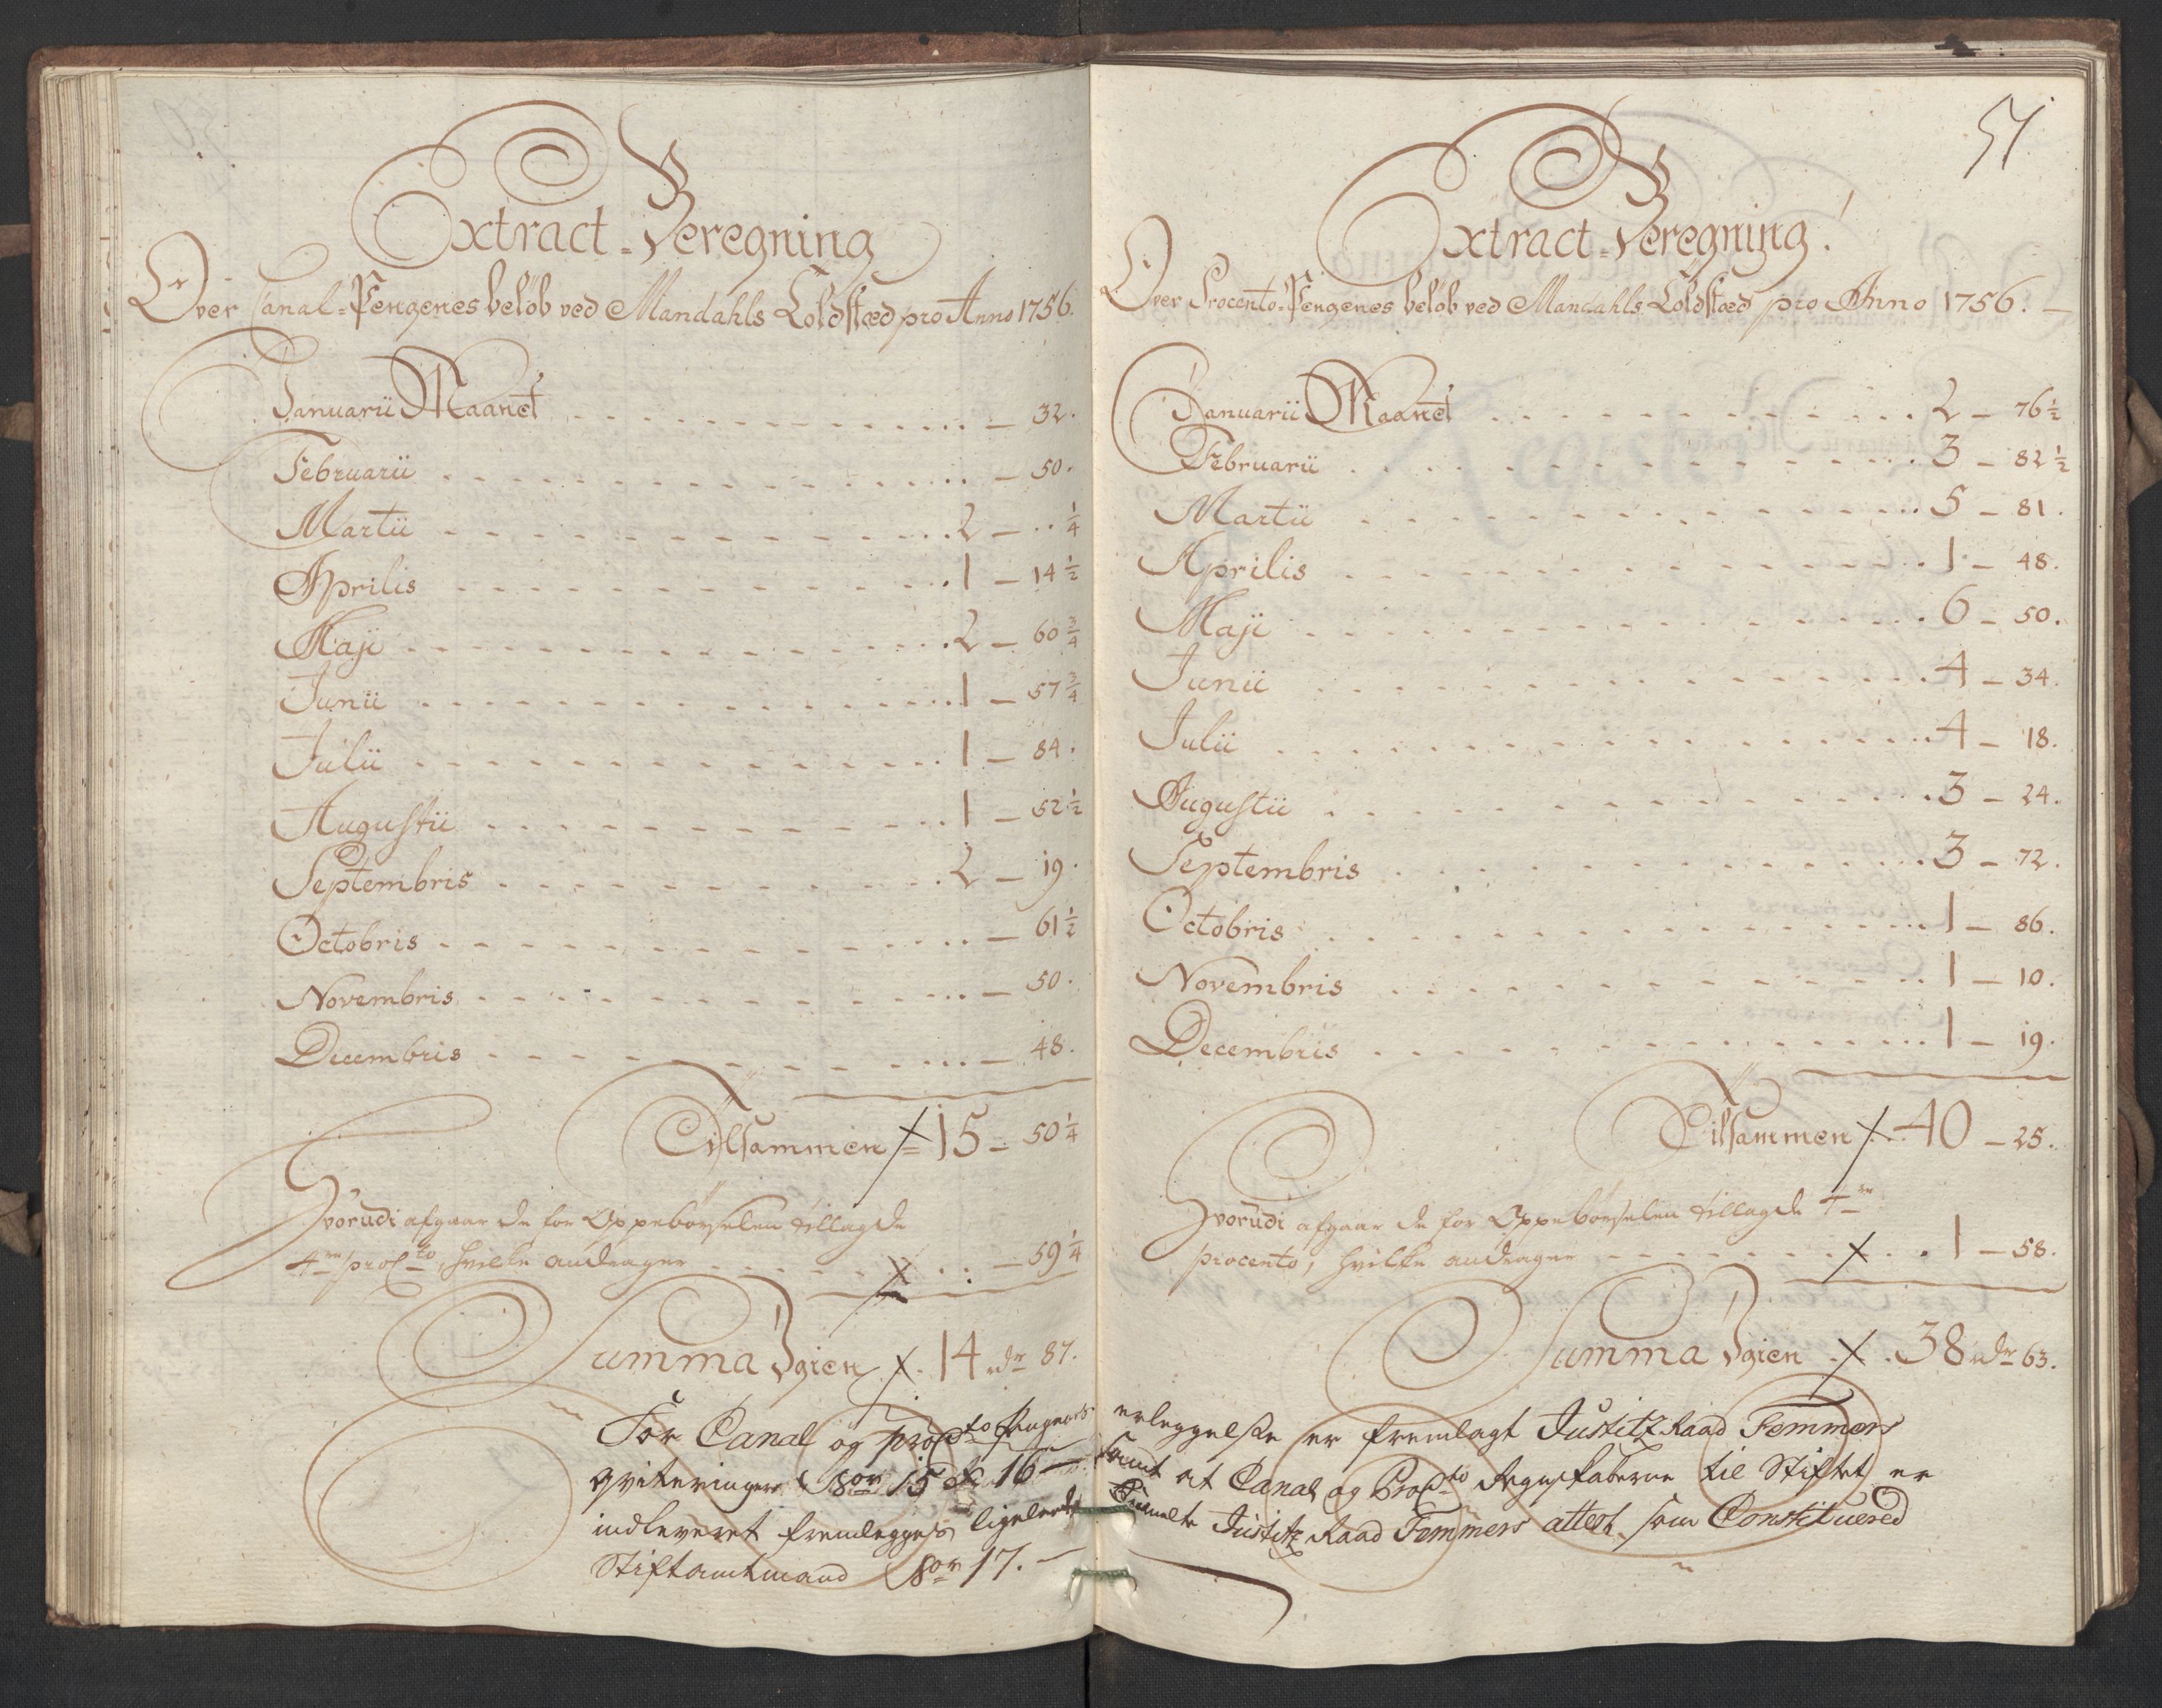 Extract-Beregning
Over Canal-Pengenes beløb ved Mandahls Toldstæd pro Anno 1756.
Januarii Maanet - 32.
Februarii - 50.
Martii 2 - .. 1/4
Aprilis 1 - 14 1/2
Maji 2 - 60 3/4
Junii 1 - 57 3/4
Julii 1 - 84.
Augustii 1 - 52 1/2
Septembris 2 - 19.
Octobris - 61 1/2
Novembris - 50.
Decembris - 48.
Tilsammen 15 - 50 1/4
Hvorudi afgaar de for Oppebørselen tillagde
4re proCto, hvilke andrager - 59 1/4
Summa Igien 14 rdr 87.
For Canal og proCto Pengenes
qviteringer sor 15 & 16
indleveret fremlegges ligeledes
Stiftamtmand sor 17.
51
Extract-Beregning!
Over Procento-Pengenes beløb ved Mandahls Toldstæd pro Anno 1756.
Januarii Maanet 2 - 76 1/2
Februarii 3 - 82 1/2
Martii 5 - 81.
Aprilis 1 - 48.
Maji 6 - 50.
Junii 4 - 34.
Julii 4 - 18.
Augustii 3 - 24.
Septembris 3 - 72.
Octobris 1 - 86.
Novembris 1 - 10.
Decembris 1 - 19.
Tilsammen 40 - 25.
Hvorudi afgaar de for Oppebørselen tillagde 4re
procento, hvilke andrager 1 - 58.
Summa Igien 38 rdr 63.
erleggelse er fremlagt Justitz Raad Femmers
samt at Canal og ProCto Regnskaberne til Stiftet er
Justitz Raad Femmers attest som Constituered